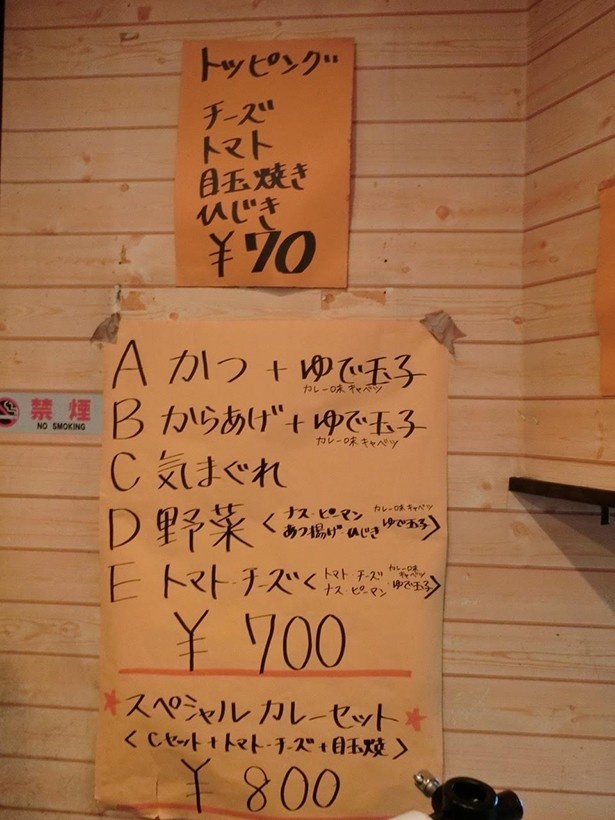 トッピング
チーズ
トマト
目玉焼き
ひじき
¥70
A かつ + ゆで玉子
カレー味 キャベツ
B からあげ + ゆで玉子
カレー味 キャベツ
禁煙
NO SMOKING
C 気まぐれ
D 野菜 < ナス・ピーマン カレー味 キャベツ
あつ揚げ・ひじき ゆで玉子 >
E トマト・チーズ < トマト・チーズ カレー味 キャベツ
ナス・ピーマン・ゆで玉子 >
¥ 700
★スペシャル カレーセット★
< Cセット + トマト・チーズ + 目玉焼 >
¥ 800